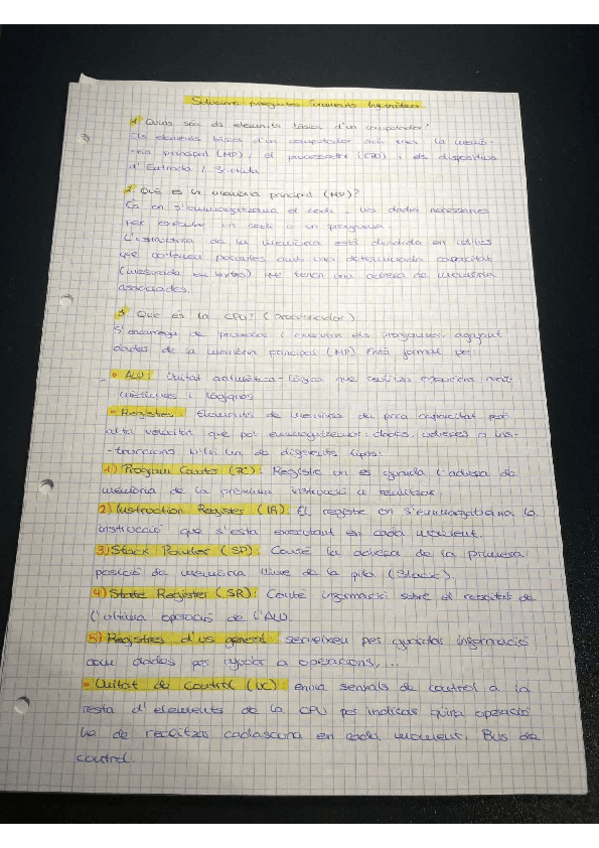 Solucions preguntes
1. Quins són els elements bàsics d'un computador?
Els elements bàsics d'un computador són tres: la memò-
ria principal (MP), el processador (CPU) i els dispositius
d'Entrada / Sortida.
2. Què és la memòria principal (MP)?
És on s'emmagatzema el codi i les dades necessàries
per executar un codi o un programa.
L'estructura de la memòria està dividida en cel·les
que contenen paraules amb una determinada capacitat
(mesurada en bytes) que tenen una adreça de memòria
associades.
3. Què és la CPU? (processador)
S'encarrega de processar i executar els programes, agafant
dades de la memòria principal (MP). Està format per:
- • ALU: Unitat aritmètica-lògica que realitza operacions arit-
mètiques i lògiques
• Registres: Elements de memòria de poca capacitat però
alta velocitat que pot emmagatzemar dades, adreces o ins-
-truccions. N'hi ha de diferents tipus:
1) Program Counter (PC): Registre on es guarda l'adreça de
memòria de la pròxima instrucció a realitzar.
2) Instruction Register (IR): El registre on s'emmagatzema la
instrucció que s'està executant en cada moment.
3) Stack Pointer (SP): Conté la adreça de la primera
posició de memòria lliure de la pila (Stack).
4) State Register (SR): Conté informació sobre el resultat de
l'última operació de l'ALU.
5) Registres d'ús general: serveixen per guardar informació
com dades per ajudar a operacions,...
• Unitat de Control (UC): envia senyals de control a la
resta d'elements de la CPU per indicar quina operació
ha de realitzar cadascuna en cada moment. Bus de
control.